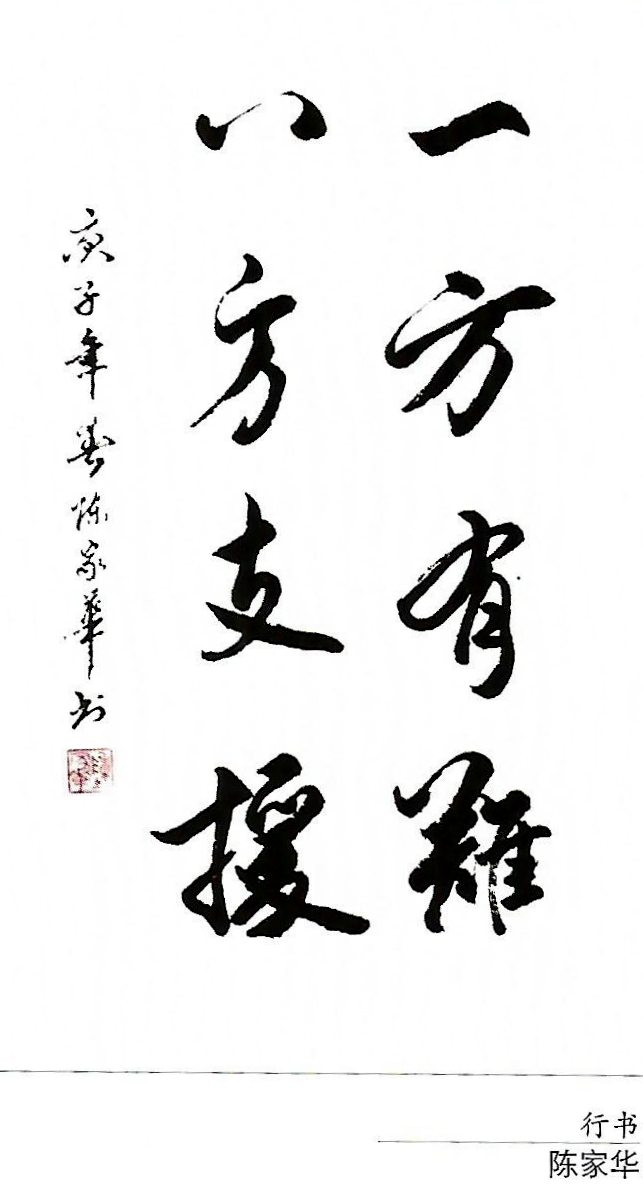 一方有難
八方支援
庚子年春陈家華书
行书
陈家华